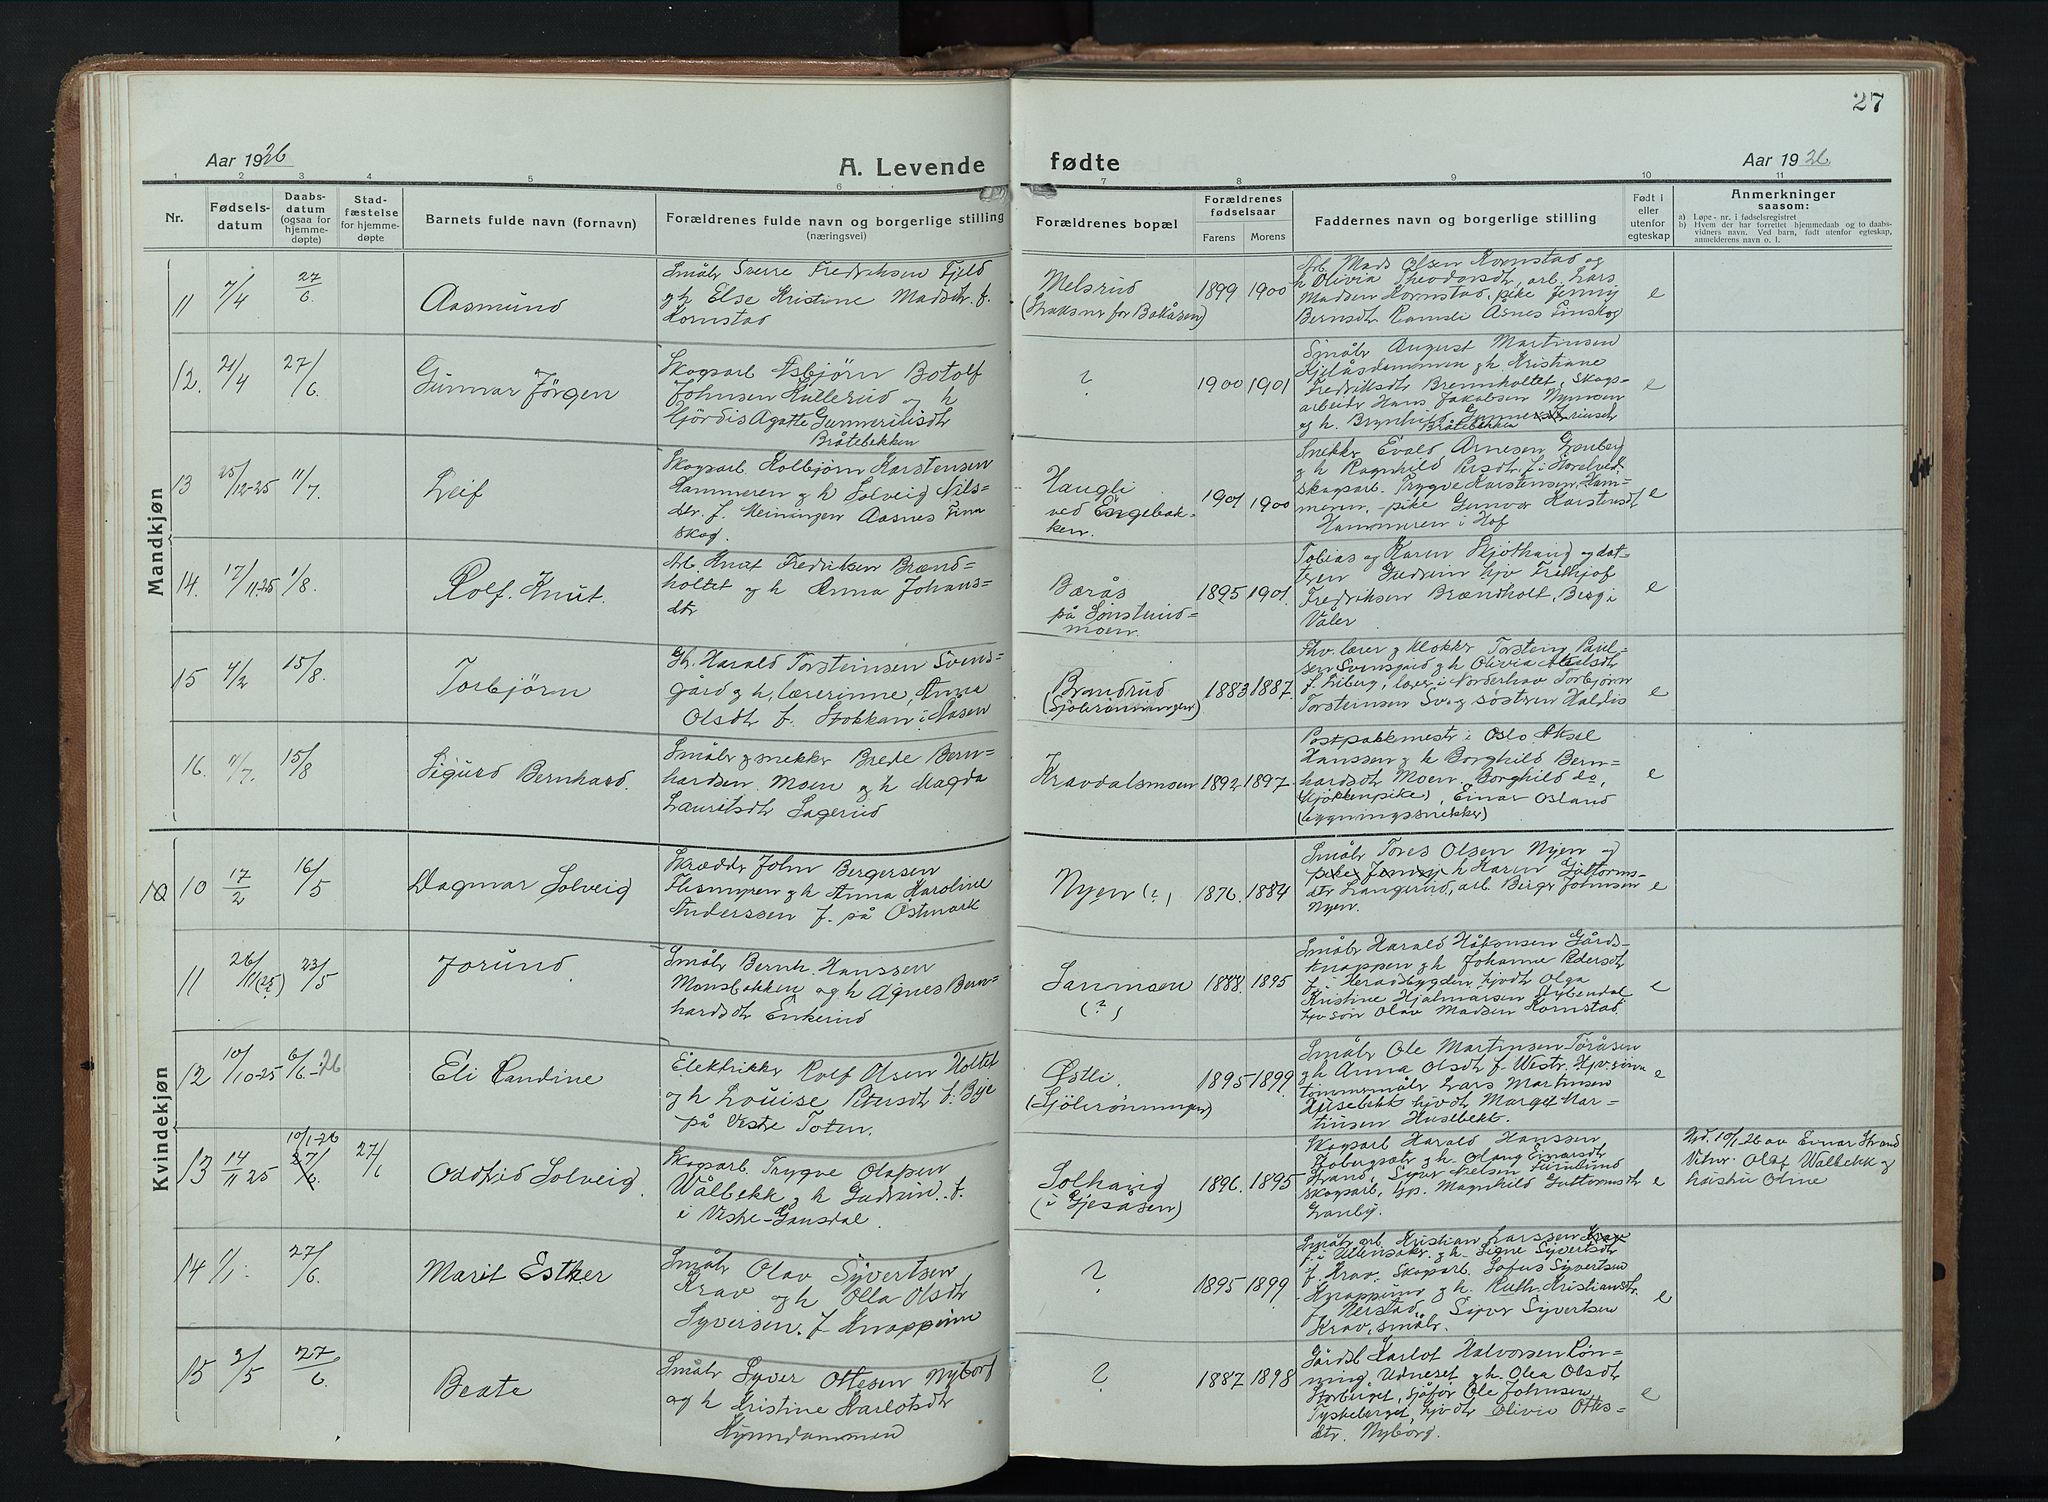 27
Aar 1926
A. Levende
fødte
Aar 1926
1 2 3 4 5 6 7 8 9 10 11
Nr.
Fødsels-
datum
Daabs-
datum
(ogsaa for
hjemme-
døpte)
Stad-
fæstelse
for hjemme-
døpte
Barnets fulde navn (fornavn)
Forældrenes fulde navn og borgerlige stilling
(næringsvei)
Forældrenes bopæl
Forældrenes
fødselsaar
Farens Morens
Faddernes navn og borgerlige stilling
Født i
eller
utenfor
egteskap
Anmerkninger
saasom:
a) Løpe-nr. i fødselsregistret
b) Hvem der har forrettet hjemmedaab og to daabs-
vidners navn. Ved barn, født utenfor egteskap,
anmelderens navn o. l.
Mandkjøn
11 7/4 27/6 Aasmund
Småbr Sverre Fredriksen Fjeld
og h Else Kristine Madsdtr. f.
Kornstad
Melsrud
1899 1900
Arb. Mads Olsen Kornstad og
h Olivia Theodorsdtr, arb. Lars
Madsen Kornstad, pike Jenny
Berndtr Åsnes Finskog
e
12. 21/4 27/6 Gunnar Jörgen
Skogsarb Asbjörn Botolf
Johnsen Kullerud og h
Hjördis Agatte
Bråtebekken
?
1900 1901
Småbr August Martinsen
Kjelåsdammen og h Kristiane
Fredriksdtr Brennholtet, Skogs-
arbeider Hans Jakobsen Nymoen
og h. Brynhild
Bråtebekken
e
13 25/12-25 11/7 Leif
Skogsarb Kolbjörn Karstensen
Hammeren og h Solveig Nils-
dtr. f. Meiningen Aasnes Finn
skog.
Haugli
ved Engebak-
ken.
1901 1900
Snekker Evald Arnesen Granberg
og h Ragnhild Persdtr. f. i
skogsarb. Trygve Karstensen, Ham-
meren, pike Gunvor Karstensdtr
Hammeren i Hof
e
14. 17/11-25 1/8. Rolf. Knut.
Arb. Knut Fredriksen Brænd-
holtet og h Anna Johans-
dtr
Bærås
på Sönsterud-
moen.
1895 1901.
Tobias og Karen Skjöthaug og dat-
teren Gudrun hjv Frithjof
Fredriksen Brændholt, Berg i
Våler
e
15 4/2 15/8. Torbjörn
Gbr. Harald Torsteinsen Svens-
gård og h, lærerinne, Anna
Olsdtr f. Stokkan i Aasen
Brandrud
(Sjölirönningen)
1883 1887.
Fhv. lærer og klokker Torstein Paul-
sen Svensgård og h Olivia
f. Liberg, lærer i Norderhov Torbjörn
Torsteinsen Sv. og søstren Haldis
e
16. 15/8 Sigurd Bernhard.
Småbr og snekker Brede Bern-
hardsen Moen og h Magda
Lauritsdtr Sagerud
Kravdalsmoen
1892 1897
Postpakkmestr i Oslo Aksel
Hanssen og h Borghild Bern-
hardsdtr Moen. Borghild do,
(kjökkenpike), Einar Osland
(bygningssnekker)
e
Kvindekjøn
10 10 17/2 16/5 Dagmar Solveig
Skrædder John Bergersen
Flismyren og h Anna Karoline
Anderssen f. på Östmark
Nyen (?)
1876. 1884
Småbr Tores Olsen Nyen og
h Karen Guttorms-
dtr Langerud, arb Berger Johnsen
Nyen.
e
11 26/11(25?) 23/5 Jorund.
Småbr Bernh. Hanssen
Monsbakken og h Agnes Bern-
hardsdtr Enkerud
(?)
1888. 1895
Småbr Harald Håkonsen Gårds-
knappen og h Johanne Pedersdtr
f. i Heradsbygden, hjvdtr Olga
Kristine Hjalmarsen Stybendal
hjv sön Olav Madsen Kornstad.
e
12 10/10-25 6/6-26 Eli Randine
Elektrikker Rolf Olsen Holtet
og h Louise Petersdtr f. Bye
på Vestre Toten.
Østli.
(Sjölirönningen)
1895 1899.
Småbr Ole Martinsen Toråsen
og h Anna Olsdtr f. Westr.
tömmermåler Lars Martinsen
Husebekk hjvdtr Margit Mar-
tinsen Husebekk.
e
13 14/11 25 10/1-26 27/6 27/6 Oddfrid Solveig.
Skogsarb. Trygve Olafsen
Wålbekk og h Gudrun. f.
i Vestre-Gausdal.
Solhaug
(i Gjesåsen)
1896. 1895
Skogsarb Harald Hanssen
og h Olaug Einarsdtr
Strand, Syver Nielsen Furulund
skogsarb, Magnhild Guttormsdtr
Granby.
e
Hjd. 10/1-26 av Einar Strand
Vitner Olaf Walbekk og
14 1/1. 27/6 Marit Esther
Småbr Olav Syvertsen
Krav og h Olla Olsdtr
Syversen. f Knappinn
?
1895 1899
Småbr arb. Kristian Larssen
f. i Ullensaker og h. Signe Syvertsdtr
f. Krav. Skogsarb. Sofus Syvertsen
og h. Ruth Kristiansdtr.
f Nerstad, Syver Syvertsen
Krav, småbr.
e
15 2/5 27/6 Beate
Småbr Syver Ottesen Nyborg
og h Kristine Karlotsdtr
Kynndammen
?
1887 1898
Gårdsb Karlot Halvorsen Rön-
ning, Udneset og h. Olea Olsdtr
Storberget, sjåför Ole Johnsen
Tyskeberget, hjvdtr Olivia Ottes-
dtr. Nyborg.
e